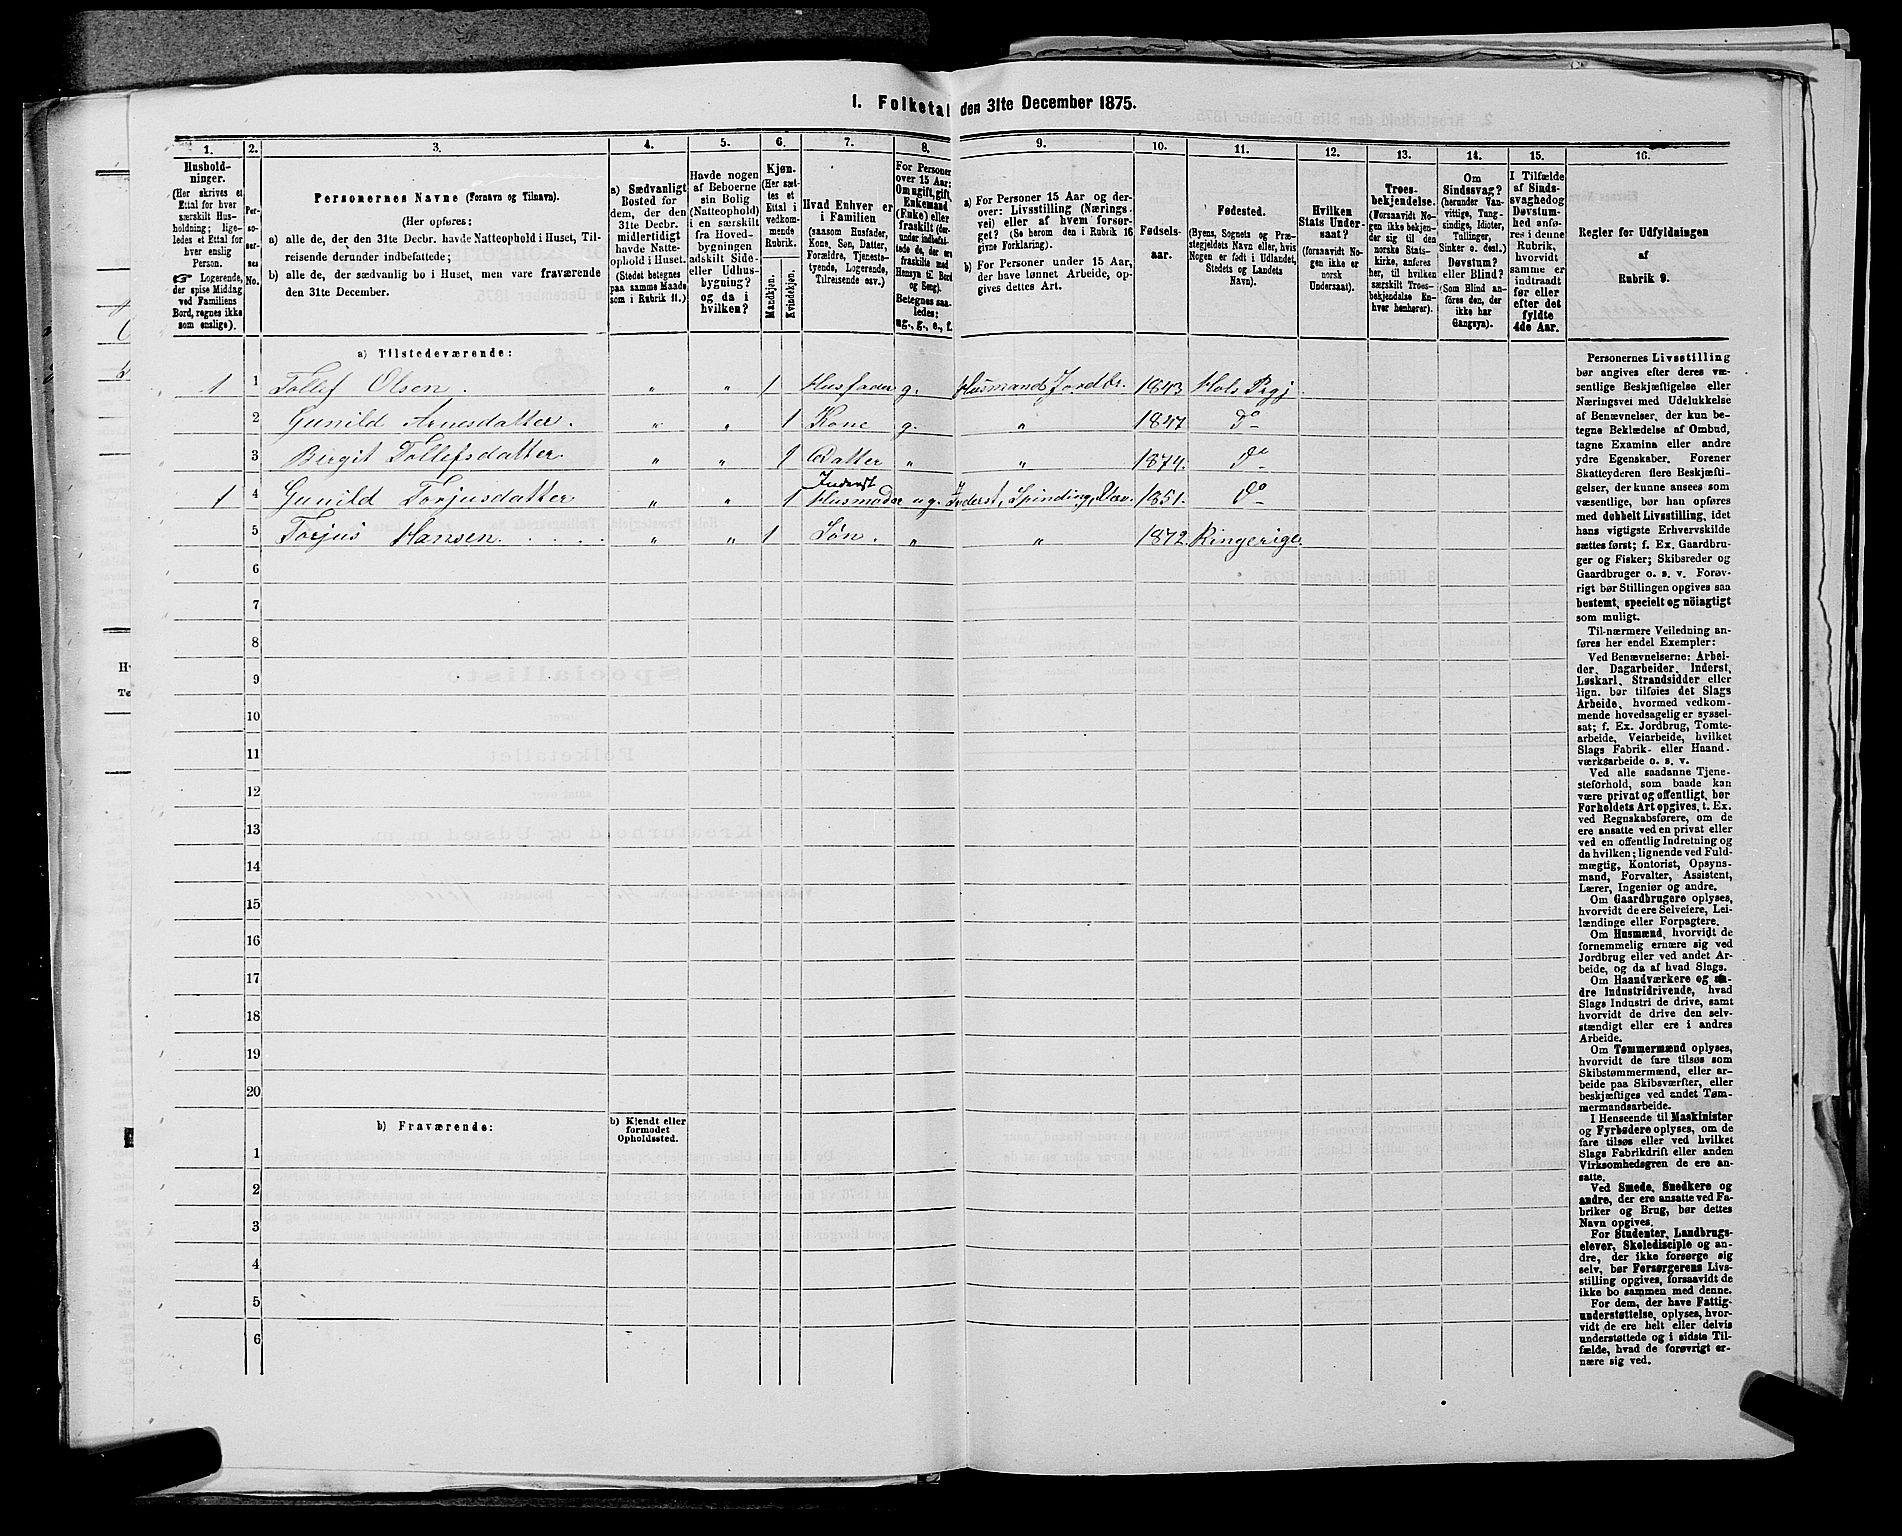 1. Folketal den 31te December 1875.
1. 2. 3. 4. 5. 6. 7. 8. 9. 10. 11. 12. 13. 14. 15. 16.
Hushold-
ninger.
(Her skrives et
Ettal for hver
særskilt Hus-
holdning; lige-
ledes et Ettal for
hver enslig
Person.
☞ Logerende,
der spise Middag
ved Familiens
Bord, regnes ikke
som enslige).
Per-
so-
ner-
nes
No.
Personernes Navne (Fornavn og Tilnavn).
(Her opføres:
a) alle de, der den 31te Decbr. havde Natteophold i Huset, Til-
reisende derunder indbefattede;
b) alle de, der sædvanlig bo i Huset, men vare fraværende
den 31te December.
a) Sædvanligt
Bosted for
dem, der den
31te Decbr.
midlertidigt
havde Natte-
ophold i Huset.
(Stedet betegnes
paa samme Maade
som i Rubrik 11.)
Havde nogen
af Beboerne
sin Bolig
(Natteophold)
i en særskilt
fra Hoved-
bygningen
adskilt Side-
eller Udhus-
bygning?
og da i
hvilken?
Kjøn.
(Her sæt-
tes et
Ettal i
vedkom-
mende
Rubrik.
Mandkjøn.
Kvindekjøn.
Hvad Enhver er
i Familien
(saasom Husfader,
Kone, Søn, Datter,
Forældre, Tjeneste-
tyende, Logerende,
Tilreisende osv.)
For Personer
over 15 Aar:
Om ugift, gift,
Enkemand
(Enke) eller
fraskilt (der-
under indbefat-
tede de, der ere
fraskilte med
Hensyn til Bord
og Seng).
Betegnes saa-
ledes:
ug., g., e., f.
a) For Personer 15 Aar og der-
over: Livsstilling (Nærings-
vei) eller af hvem forsør-
get? (Se herom den i Rubrik 16
givne Forklaring).
b) For Personer under 15 Aar,
der have lønnet Arbeide, op-
gives dettes Art.
Fødsels-
aar.
Fødested.
(Byens, Sognets og Præ-
stegjeldets Navn eller, hvis
Nogen er født i Udlandet,
Stedets og Landets
Navn).
Hvilken
Stats Under-
saat?
(forsaavidt No-
gen ikke er
norsk
Undersaat).
Troes-
bekjendelse.
(Forsaavidt No-
gen ikke bekjen-
der sig til den
norske Stats-
kirke, anføres
her, til hvilken
særskilt Troes-
bekjendelse En-
hver henhører).
Om
Sindssvag?
(herunder Van-
vittige, Tung-
sindige, Idioter,
Tullinger,
Sinker o. desl.)
Døvstum?
eller Blind?
(Som Blind an-
føres den, der
ikke har
Gangsyn).
I Tilfælde
af Sinds-
svaghed og
Døvstum-
hed anfø-
res i denne
Rubrik,
hvorvidt
samme er
indtraadt
før eller
efter det
fyldte
4de Aar.
Regler for Udfyldningen
af
Rubrik 9.
a) Tilstedeværende:
1 1 Tollef Olsen. " " 1 Husfader g. Husmand Jordbr. 1843 Hols Prgj.
2 Gunild Arnesdatter. " " 1 Kone g. " 1847 Do
3 Birgit Tollefsdatter " " 1 Datter " " 1874. Do
Inderst
1 4 Gunild Torjusdatter " " 1 Husmoder ug. Inderst, Spinding, Væv. 1851. Do
5 Torjus Hansen. " " 1 Søn. " " 1872. Ringerige
6
7
8
9
10
11
12
13
14
15
16
17
18
19
20
b) Fraværende:
b) Kjendt eller
formodet
Opholdssted.
1
2
3
4
5
6
Personernes Livsstilling
bør angives efter deres væ-
sentlige Beskjæftigelse eller
Næringsvei med Udelukkelse
af Benævnelser, der kun be-
tegne Beklædelse af Ombud,
tagne Examina eller andre
ydre Egenskaber. Forener
Skatteyderen flere Beskjæfti-
gelser, der kunne ansees som
væsentlige, bør han opføres
med dobbelt Livsstilling, idet
hans vigtigste Erhvervskilde
sættes først; f. Ex. Gaardbru-
ger og Fisker; Skibsreder og
Gaardbruger o. s. v. Forøv-
rigt bør Stillingen opgives saa
bestemt, specielt og nöiagtigt
som muligt.
Til nærmere Veiledning an-
føres her endel Exempler:
Ved Benævnelserne: Arbei-
der, Dagarbeider, Inderst,
Løskarl, Strandsidder eller
lign. bør tilføies det Slags
Arbeide, hvormed vedkom-
mende hovedsagelig er syssel-
sat; f. Ex. Jordbrug, Tomte-
arbeide, Veiarbeide, hvilket
Slags Fabrik- eller Haand-
værksarbeide o. s. v.
Ved alle saadanne Tjene-
steforhold, som baade kan
være privat og offentligt, bør
Forholdets Art opgives, t. Ex.
ved Regnskabsførere, om de
ere ansatte ved en privat eller
ved en offentlig Indretning og
da hvilken; lignende ved Fuld-
mægtig, Kontorist, Opsyns-
mand, Forvalter, Assistent,
Lærer, Ingeniør og andre.
Om Gaardbrugere oplyses,
hvorvidt de ere Selveiere, Lei-
lændinge eller Forpagtere.
Om Husmænd, hvorvidt de
fornemmelig ernære sig ved
Jordbrug eller ved andet Ar-
beide, og da af hvad Slags.
Om Haandværkere og an-
dre Industridrivende, hvad
Slags Industri de drive, samt
hvorvidt de drive den selv-
stændigt eller ere i andres
Arbeide.
Om Tømmermænd oplyses,
hvorvidt de fare tilsøs som
Skibstømmermænd, eller ar-
beide paa Skibsværfter, eller
beskjæftiges ved andet Tøm-
mermandsarbeide.
I Henseende til Maskinister
og Fyrbødere oplyses, om de
fare tilsøs eller ved hvilket
Slags Fabrikdrift eller anden
Virksomhedsgren de ere an-
satte.
Ved Smede, Snedkere og
andre, der ere ansatte ved Fa-
briker og Brug, bør dettes
Navn opgives.
For Studenter, Landbrugs-
elever, Skoledisciple og an-
dre, der ikke forsørge sig
selv, bør Forsørgerens Livs-
stilling opgives, forsaavidt de
ikke bo sammen med denne.
For dem, der have Fattig-
understøttelse, oplyses, hvor-
vidt de ere helt eller delvis
understøttede og i sidste Til-
fælde, hvad de forøvrigt er-
nære sig ved.